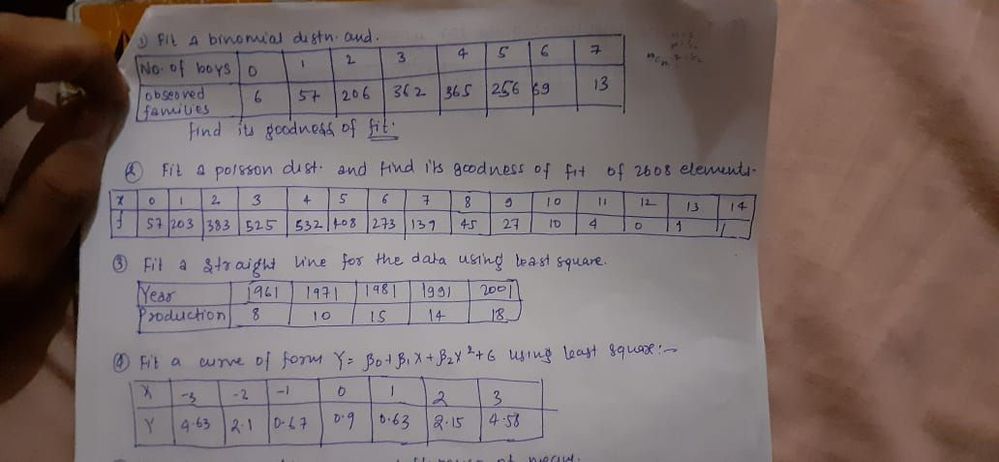 ① Fit a binomial distn. and.
No. of boys 0 1 2 3 4 5 6 7
observed families 6 57 206 362 365 256 69 13
find its goodness of fit.
② Fit a poisson dist. and find its goodness of fit of 2608 elements.
x 0 1 2 3 4 5 6 7 8 9 10 11 12 13 14
f 57 203 383 525 532 408 273 139 45 27 10 4 0 1 1
③ Fit a straight line for the data using least square.
Year 1961 1971 1981 1991 2001
Production 8 10 15 14 18
④ Fit a curve of form Y = β0 + β1 X + β2 X² + G using least square:-
X -3 -2 -1 0 1 2 3
Y 4.63 2.1 0.67 0.9 0.63 2.15 4.58